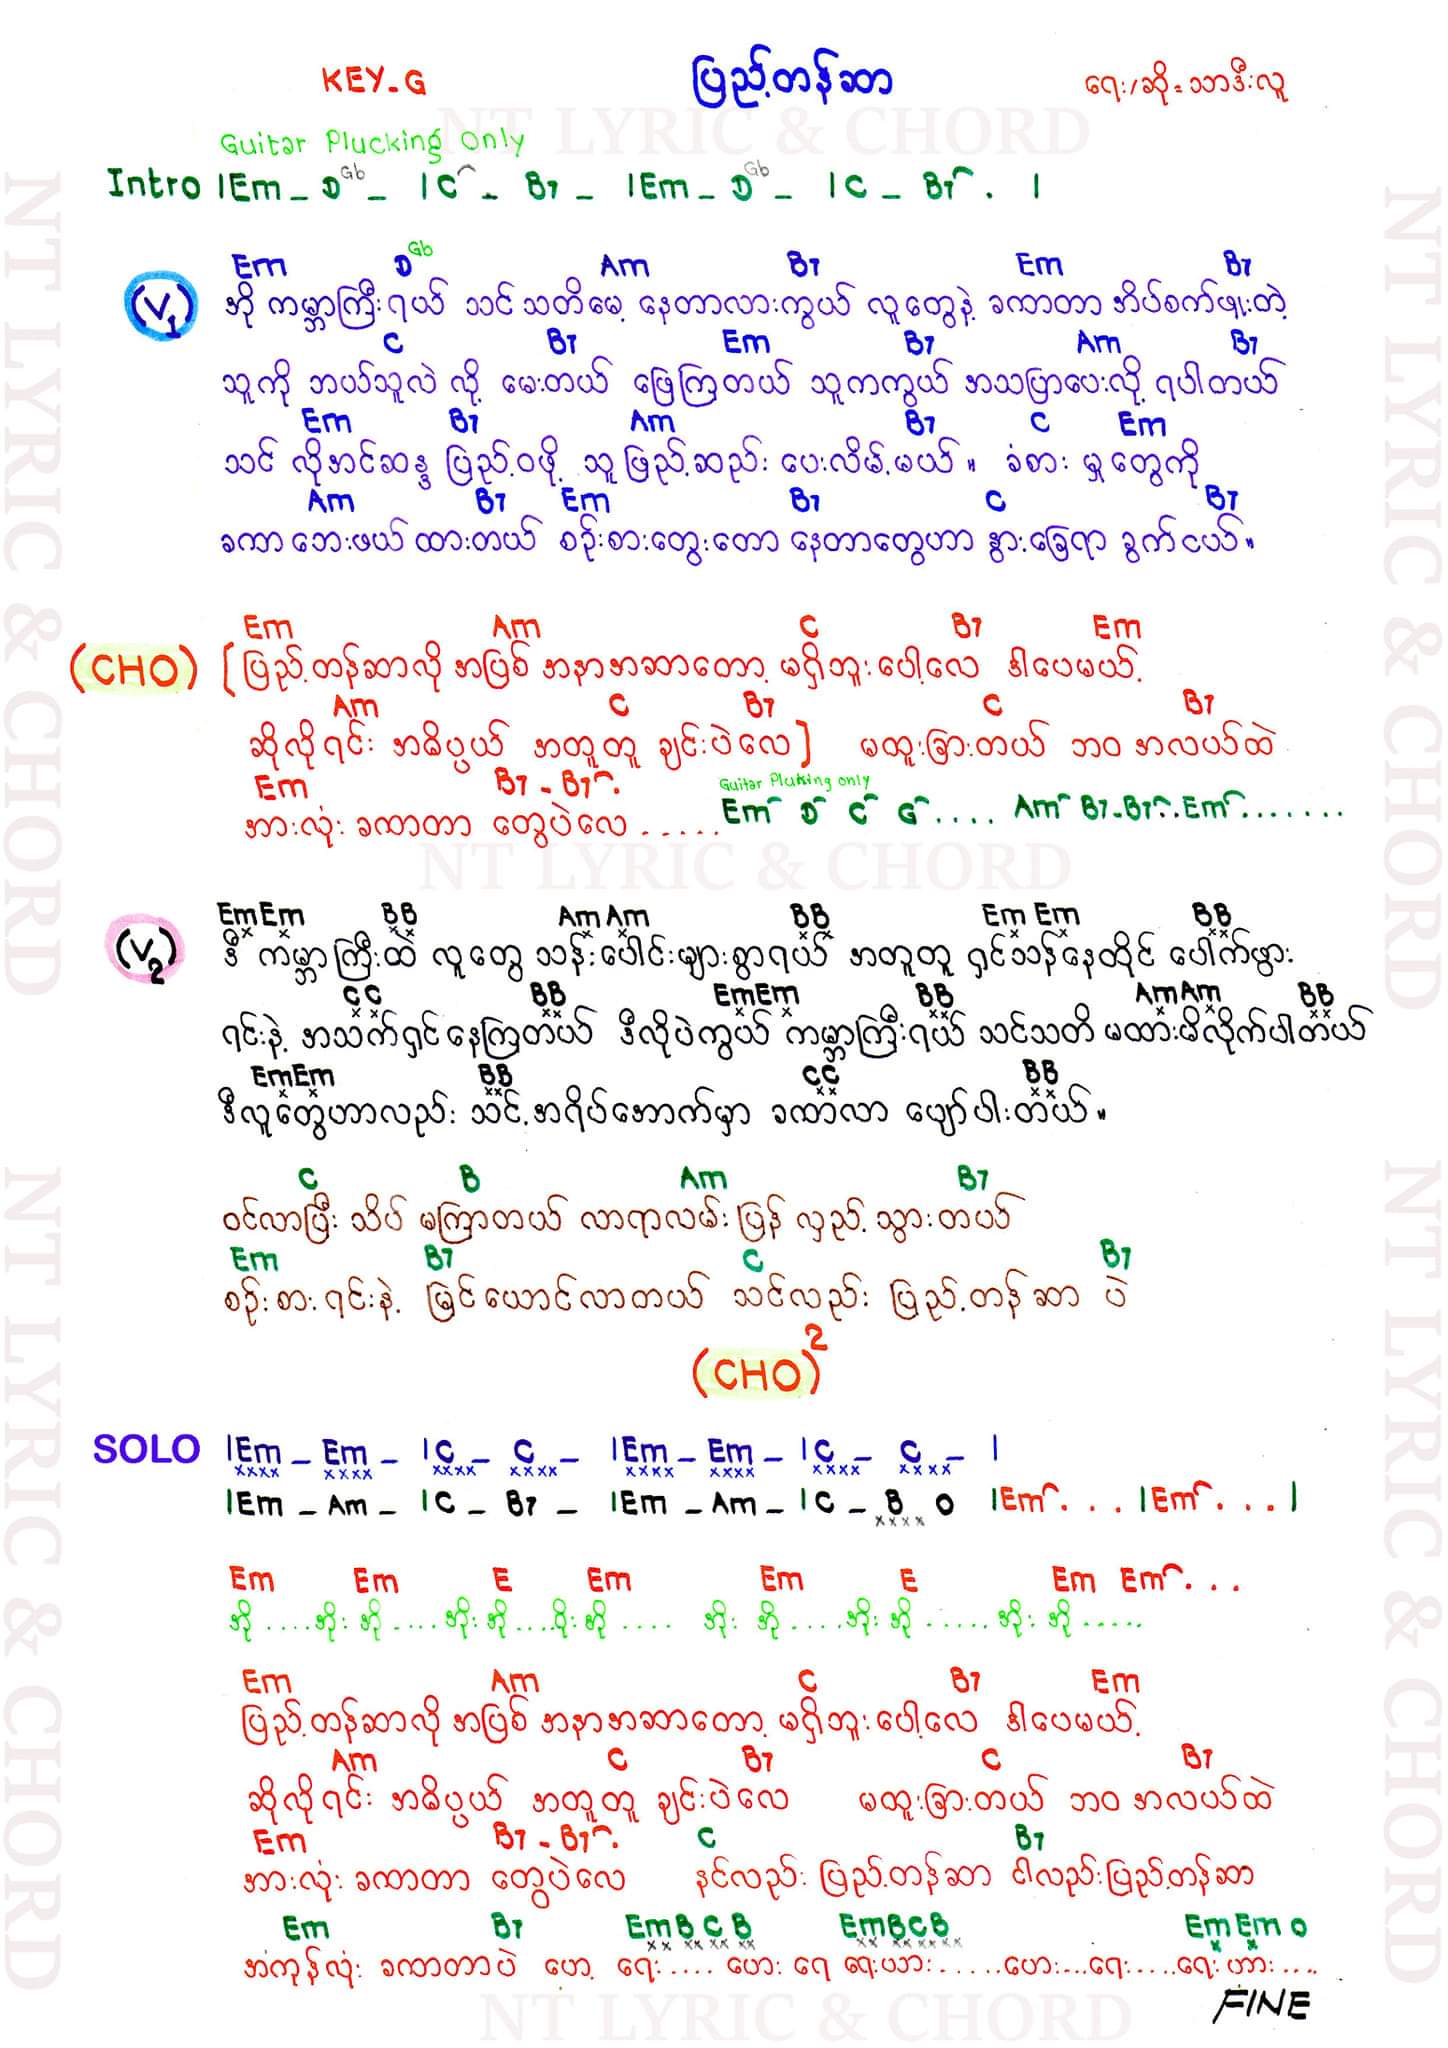 KEY-G ပြည့်တန်ဆာ ရေး/ဆို = သာဒီးလူ
NT LYRIC & CHORD
Guitar Plucking Only
Intro |Em - D Gb - |C - B7 - |Em - D Gb - |C - B7 . |
Em D Gb Am B7 Em B7
(V1) အို ကမ္ဘာကြီးရယ် သင် သတိမေ့ နေတာလားကွယ် လူတွေနဲ့ ခဏတာ အိပ်စက်ဖူးတဲ့
C B7 Em B7 Am B7
သူ့ကို ဘယ်သူလဲ လို့ မေးတယ် ဖြေကြတယ် သူကကွယ် အသပြာပေးလို့ ရပါတယ်
Em B7 Am B7 C Em
သင် လိုအင်ဆန္ဒ ပြည့်ဝဖို့ သူ ဖြည့်ဆည်း ပေးလိမ့်မယ်။ ခံစား မှုတွေကို
Am B7 Em B7 C B7
ခဏ ဘေးဖယ် ထားတယ် စဉ်းစားတွေးတော နေတာတွေဟာ နွားခြေရာ ခွက်ငယ်။
Em Am C B7 Em
(CHO) [ပြည့်တန်ဆာလို အပြစ် အနာအဆာတော့ မရှိဘူးပေါ့လေ ဒါပေမယ့်
Am C B7 C B7
ဆိုလိုရင်း အဓိပ္ပယ် အတူတူ ချင်းပဲလေ] မထူးခြားတယ် ဘဝ အလယ်ထဲ
Em B7 - B7 . Guitar Plucking only
အားလုံး ခဏတာ တွေပဲလေ ..... Em D C G .... Am B7-B7..Em.......
NT LYRIC & CHORD
Em Em B B Am Am B B Em Em B B
(V2) ဒီ ကမ္ဘာကြီးထဲ လူတွေ သန်းပေါင်းများစွာရယ် အတူတူ ရှင်သန်နေထိုင် ပေါက်ဖွား
C C B B Em Em B B Am Am B B
ရင်းနဲ့ အသက်ရှင်နေကြတယ် ဒီလိုပဲကွယ် ကမ္ဘာကြီးရယ် သင်သတိ မထားမိလိုက်ပါတယ်
Em Em B B C C B B
ဒီလူတွေဟာလည်း သင့်အရိပ်အောက်မှာ ခဏလာ ပျော်ပါးတယ်။
C B Am B7
ဝင်လာပြီး သိပ် မကြာတယ် လာရာလမ်း ပြန် လှည့်သွားတယ်
Em B7 C B7
စဉ်းစားရင်းနဲ့ မြင်ယောင်လာတယ် သင်လည်း ပြည့်တန်ဆာ ပဲ
(CHO)2
SOLO |Em - Em - |C - C - |Em - Em - |C - C - |
|Em - Am - |C - B7 - |Em - Am - |C - B O |Em. . . |Em. . . |
Em Em E Em Em E Em Em. . .
အို ....အိုး အို ....အိုး အို ....အိုး အို .... အိုး အို ....အိုး အို ...... အိုး အို ......
Em Am C B7 Em
ပြည့်တန်ဆာလို အပြစ် အနာအဆာတော့ မရှိဘူးပေါ့လေ ဒါပေမယ့်
Am C B7 C B7
ဆိုလိုရင်း အဓိပ္ပယ် အတူတူ ချင်းပဲလေ မထူးခြားတယ် ဘဝ အလယ်ထဲ
Em B7 - B7 . C B7
အားလုံး ခဏတာ တွေပဲလေ နင်လည်း ပြည့်တန်ဆာ ငါလည်းပြည့်တန်ဆာ
Em B7 Em B C B Em B C B Em Em O
အကုန်လုံး ခဏတာပဲ ဟေ့ ရေး.... ဟေး ရေ ရေးယား.....ဟေး...ရေး....ရေး ဟား....
FINE
NT LYRIC & CHORD
NT LYRIC & CHORD
NT LYRIC & CHORD
NT LYRIC & CHORD
NT LYRIC & CHORD